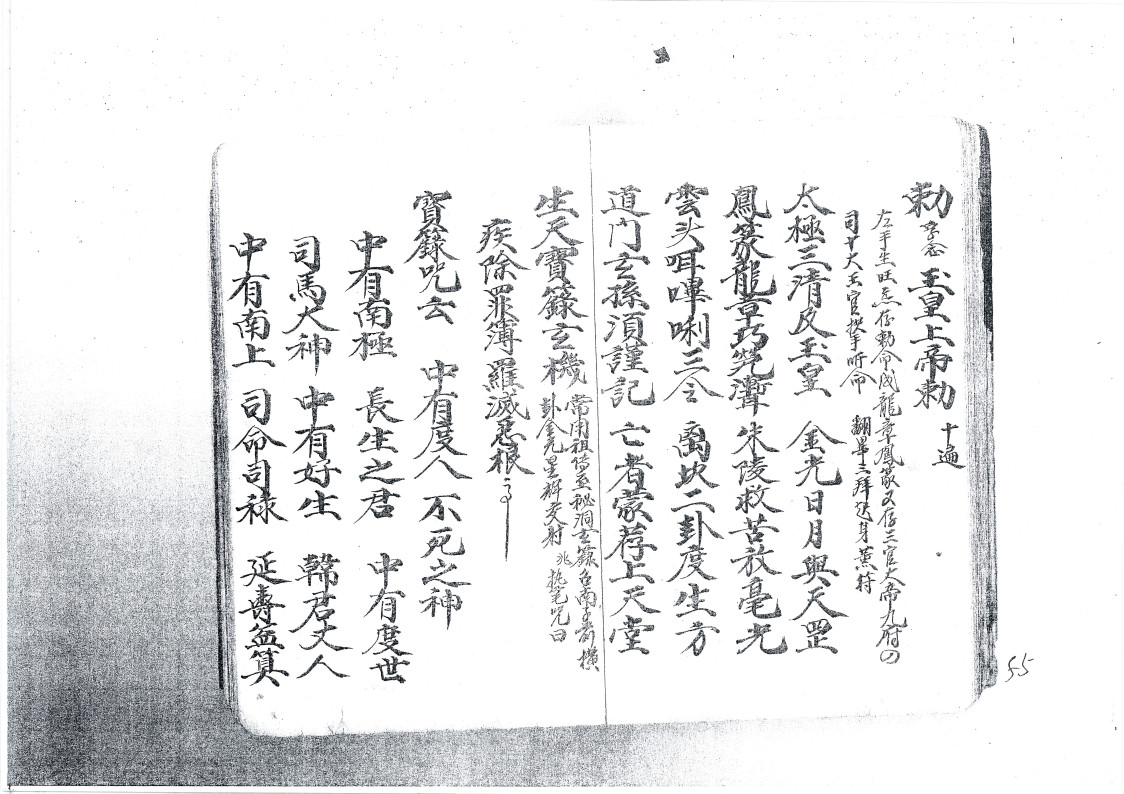 勅 玉皇上帝勅 十遍
左手生旺炁存勅命成龍章鳳篆又存三官大帝九府の
司 大王官 手听命 翻 三拜 身 符
太極三清及玉皇 金光日月與天罡
鳳篆龍章巧筅灋 朱陵救苦放毫光
雲头呾嗶唎三仝 离坎二卦度生方
道门玄孫湏謹記 亡者蒙荐上天堂
生天寶籙玄機
常用祖 至秘洞玄籙 南 前横
卦金光星 交射 兆执笔咒曰
疾除罪簿羅滅惡根
寶籙咒云 中有度人 不死之神
中有南極 長生之君 中有度世
司馬大神 中有好生 韓君丈人
中有南上 司命司禄 延壽益算
55